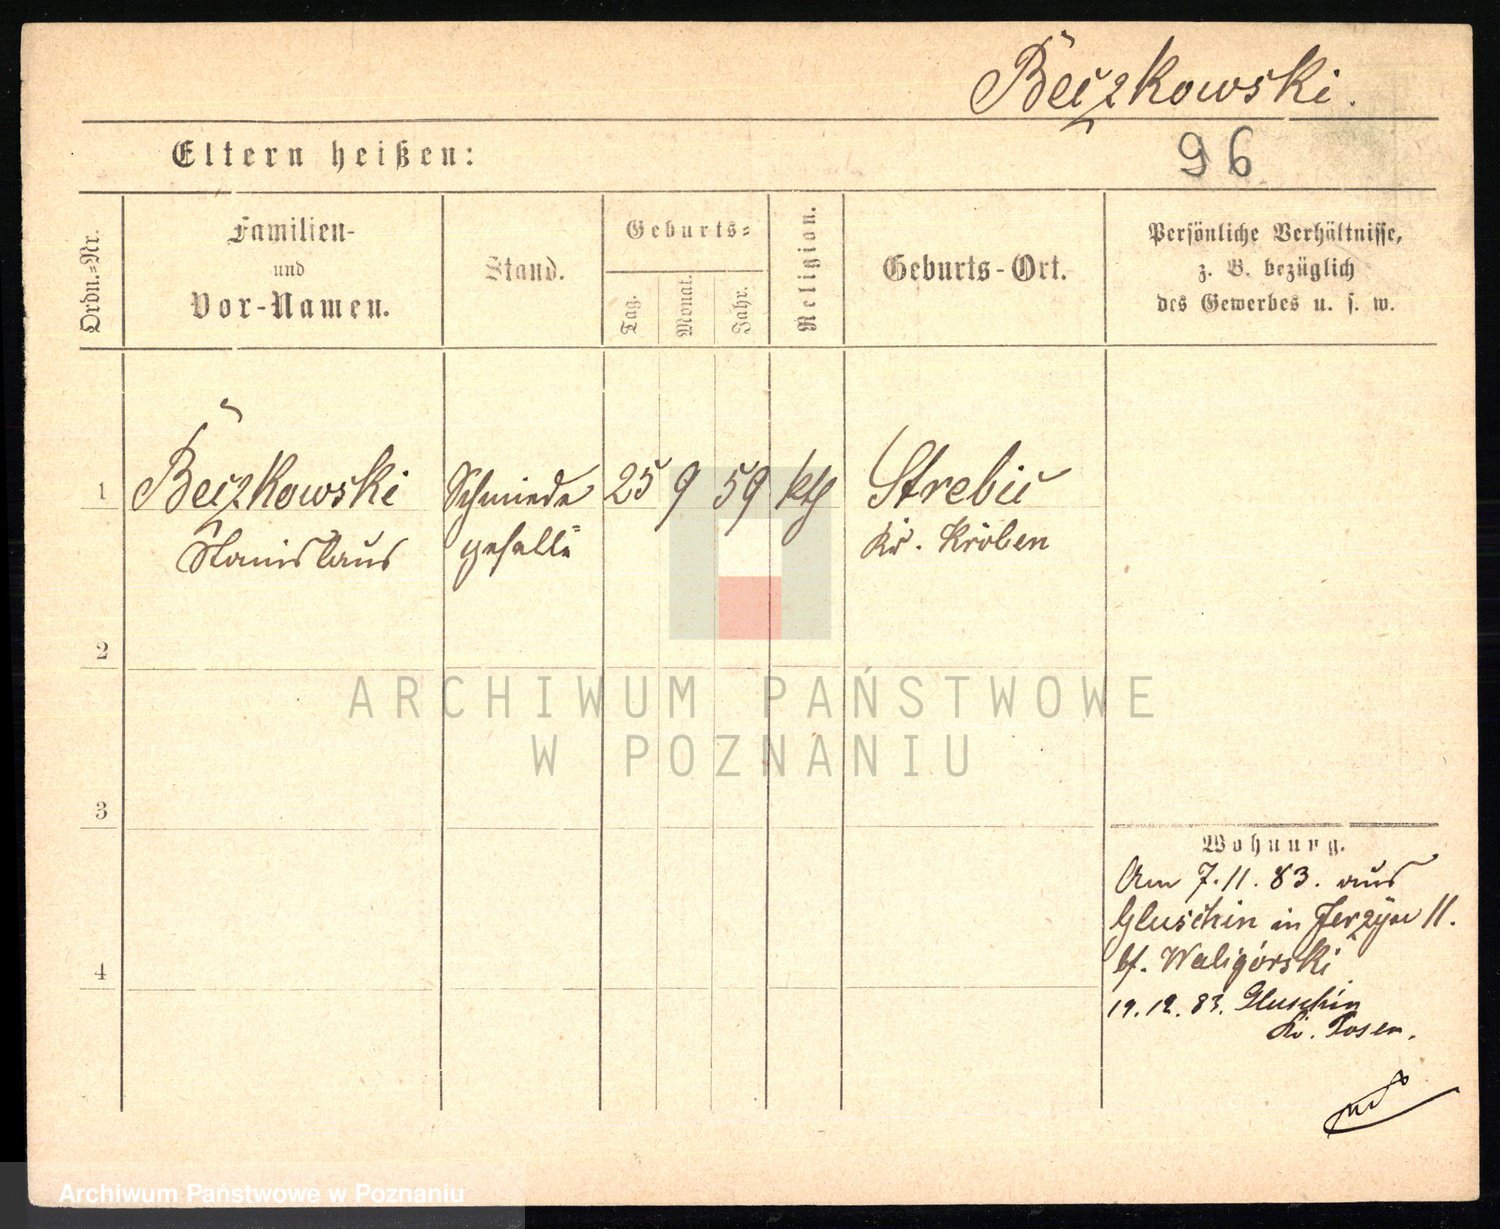 Bęczkowski.
Eltern heißen:
96
Ordn.=Nr.
Familien-
und
Vor-Namen.
Stand.
Geburts=
Tag.
Monat.
Jahr.
Religion.
Geburts-Ort.
Persönliche Verhältnisse,
z. B. bezüglich
des Gewerbes u. s. w.
1 Bęczkowski Schmiede 25 9 59 kth
Stanislaus
Kr. Kröben
2
ARCHIWUM PAŃSTWOWE
W POZNANIU
3
Wohnung.
Am 7.11.83. aus
Gluschin in 11.
bf. Waligórski
4
19.12.83. Gluschin
Kr. Posen.
Archiwum Państwowe w Poznaniu